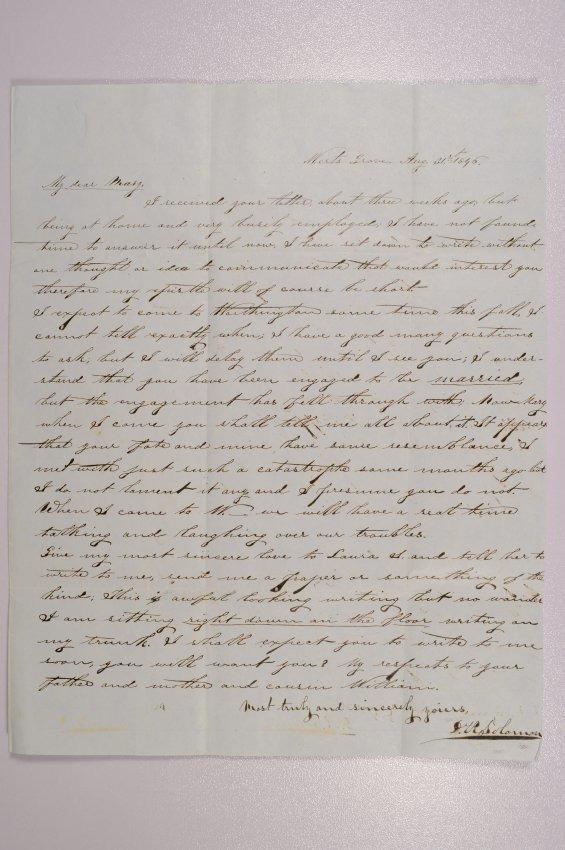 Wests Grove Aug. 31st 1846.
My dear Mary,
I received your letter, about three weeks ago, but
being at home and very busily employed; I have not found
time to answer it until now, I have set down to write without
one thought or idea to communicate that would interest you
therefore my epistle will of course be short.
I expect to come to Worthington some time this fall, I
cannot tell exactly when; I have a good many questions
to ask, but I will delay them until I see you; I under-
stand that you have been engaged to be married,
but the engagement has fell through with; Now Mary
when I come you shall tell me all about it. It appears
that your fate and mine, have some resemblance, I
met with just such a catastrophe some months ago but
I do not lament it any and I presume you do not.
When I come to W we will have a real time
talking and laughing over our troubles.
Give my most sincere love to Laura S. and tell her to
write to me, send me a paper or something of the
kind; This is awful looking writing but no wonder
I am sitting right down on the floor writing on
my trunk. I shall expect you to write to me
soon, you will wont you? My respects to your
father and mother and cousin William.
Most truly and sincerely yours,
Solomon